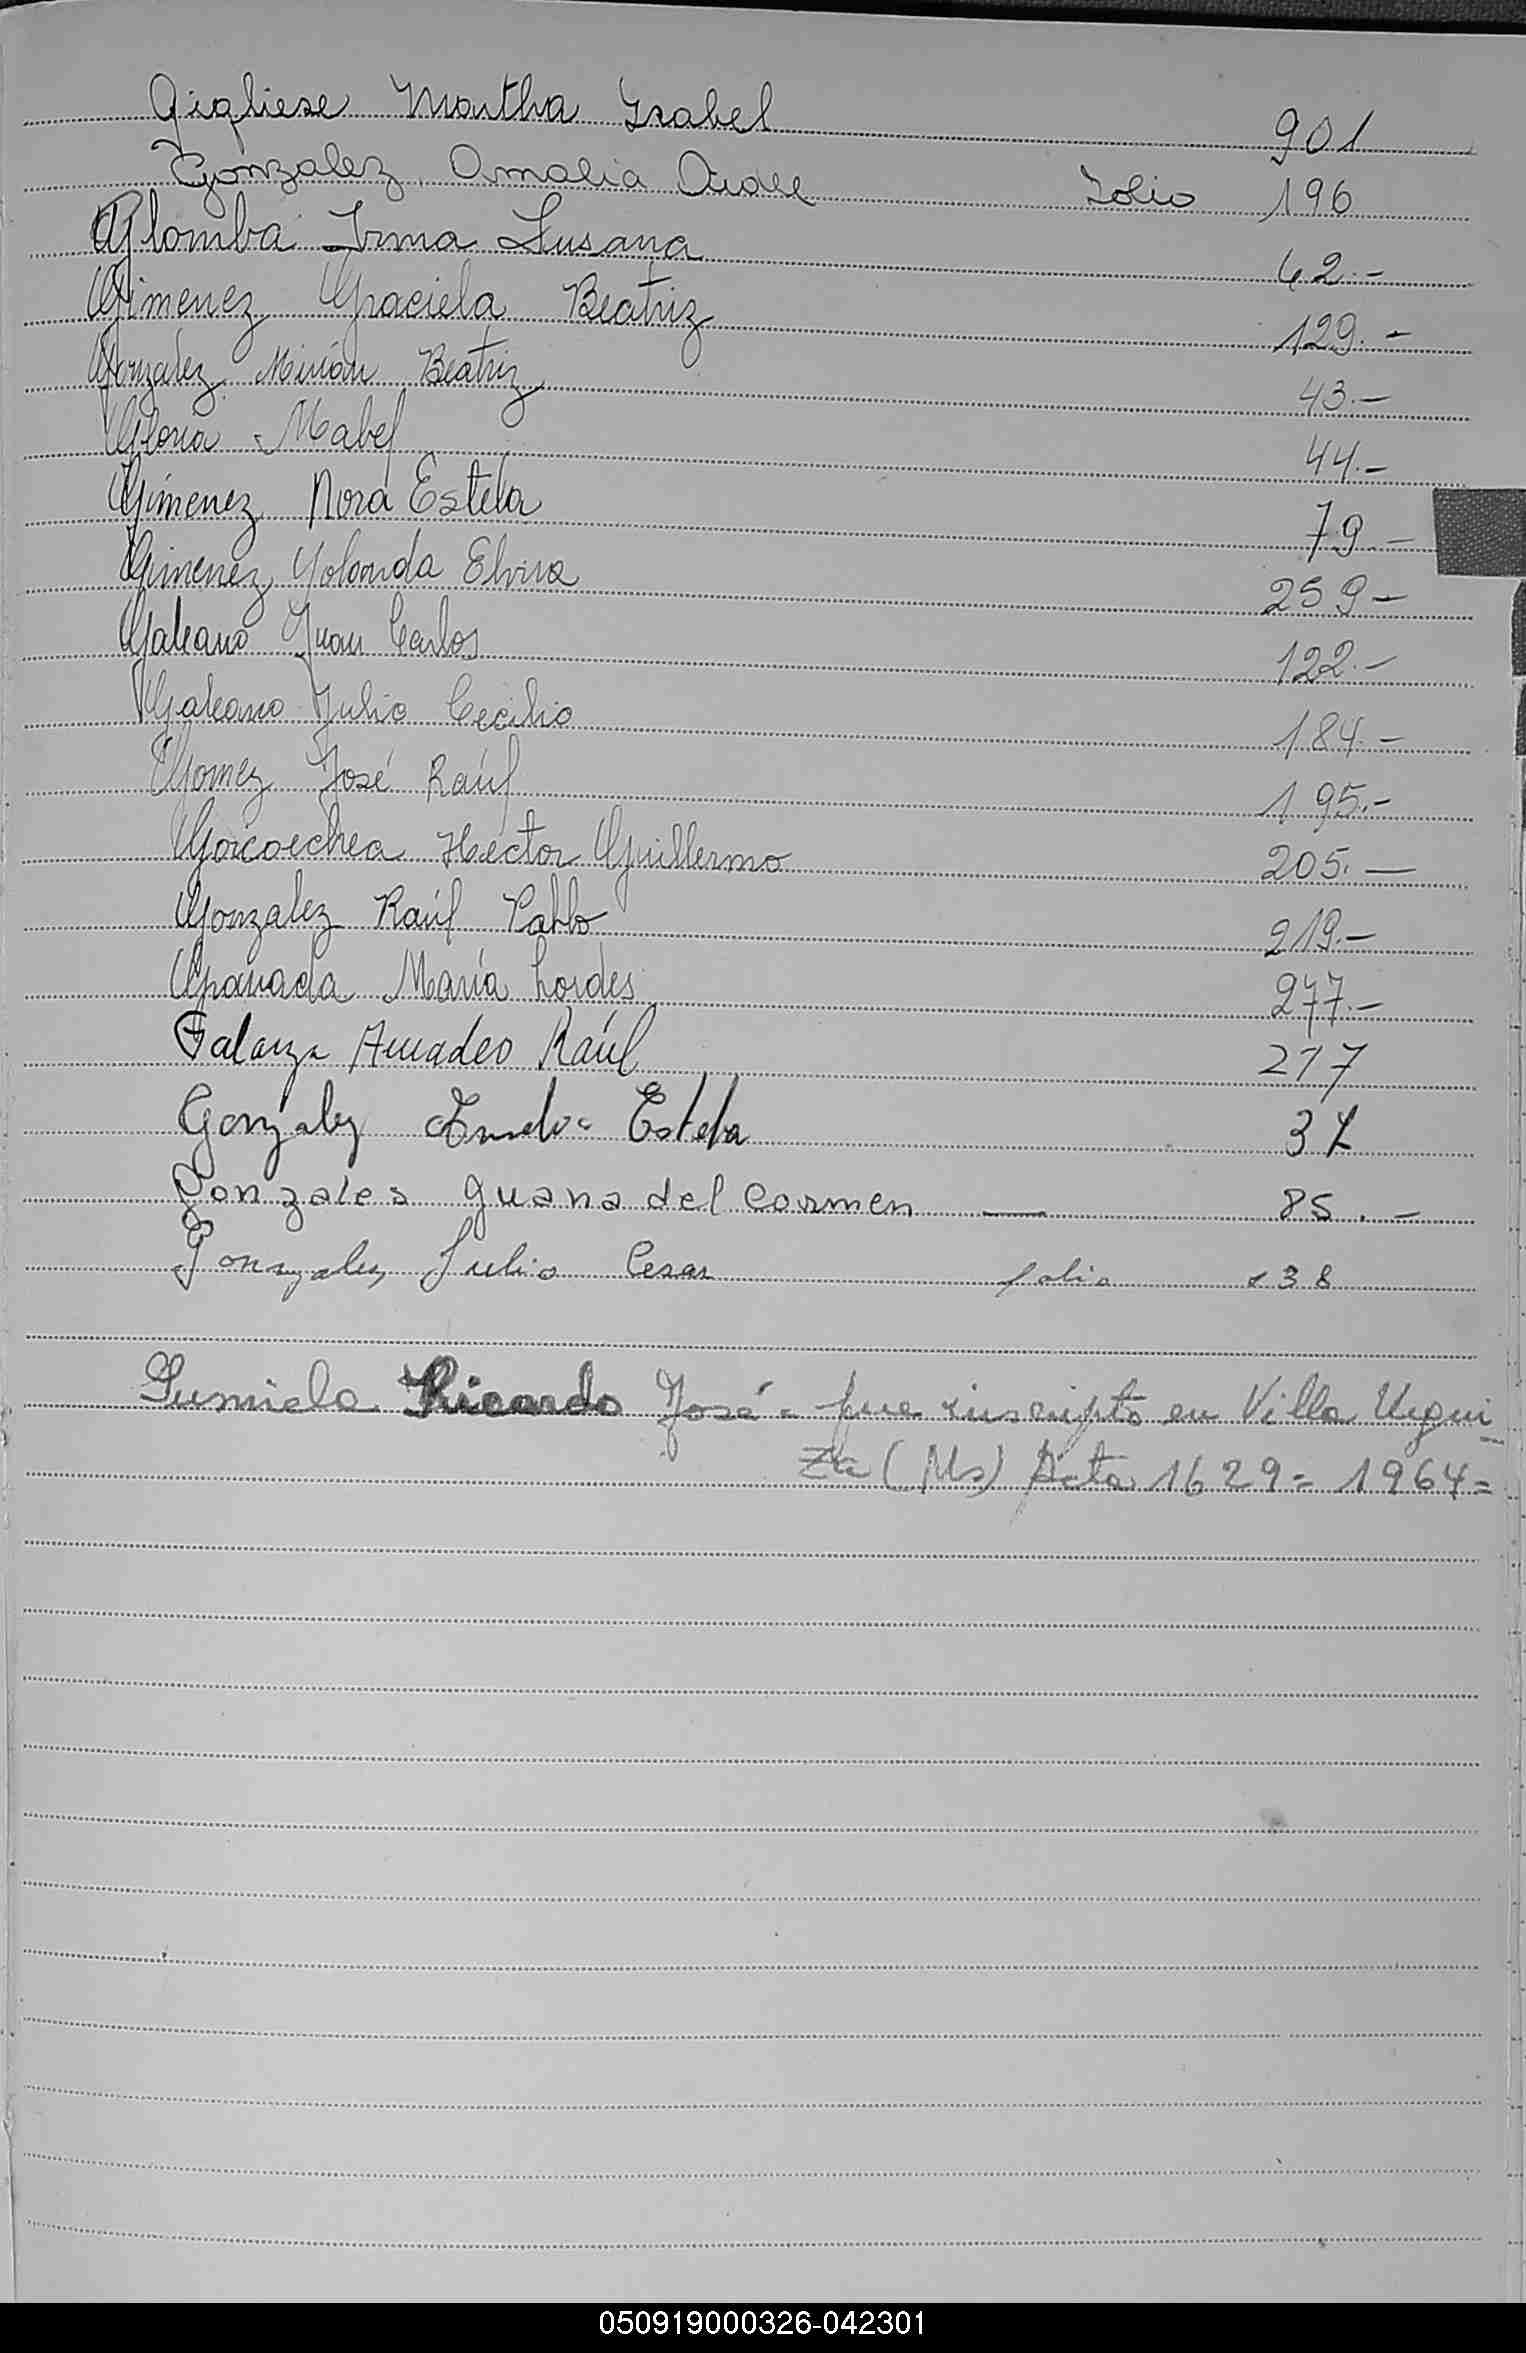 Gigliese Martha Isabel 901
Gonzalez, Amalia Folio 196
Glomba Irma Susana 42.-
Gimenez Graciela Beatriz 129.-
Gonzalez Mirián Beatriz 43.-
Gloria Mabel 44.-
Gimenez Nora Estela 79.-
Gimenez Yolanda Elvira 259-
Galeano Juan Carlos 122.-
Galeano Julio Cecilio 184.-
Gomez José Raúl 195.-
Goicoechea Hector Guillermo 205.-
Gonzalez Raúl Pablo 219.-
Granada María Lordes 277.-
Galarza Amadeo Raúl 217
Gonzalez Estela
Gonzales Juana del Carmen — 85.-
Gonzalez Julio Cesar folio 138
Gumiela Ricardo José = fue inscripto en Villa Urqui-
za (Ms) Acta 1629 = 1964 =
050919000326-042301